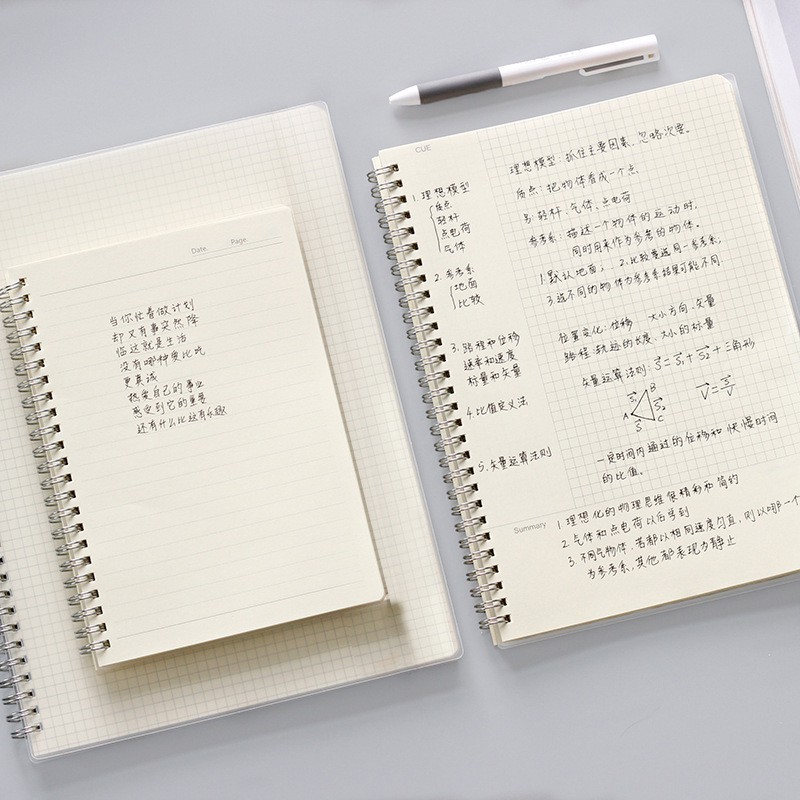 Date. Page.
当你忙着做计划
却又有事突然降
临这就是生活
没有哪种爱比吃
更真诚
热爱自己的事业
感受到它的重要
还有什么比这有乐趣
CUE
1. 理想模型
质点
轻杆
点电荷
气体
2. 参考系
地面
比较
3. 路程和位移
速率和速度
标量和矢量
4. 比值定义法
5. 矢量运算法则
理想模型: 抓住主要因素、忽略次要。
质点: 把物体看成一个点
轻杆、气体、点电荷
参考系: 描述一个物体的运动时,
同时用来作为参考的物体。
1. 默认地面; 2. 比较量选同一参考系;
3. 选不同的物体为参考系结果可能不同
位置变化: 位移 大小方向、矢量
路程: 轨迹的长度、大小的标量
矢量运算法则: S = S₁ + S₂ + 三角形
S₁ B
A S₂
S C
V = S/V
一定时间内通过的位移和快慢时间
的比值。
Summary
1 理想化的物理思维很精彩和简约
2. 气体和点电荷以后学到
3. 不同气物体, 若都以相同速度匀直, 则以哪一个
为参考系, 其他都表现为静止